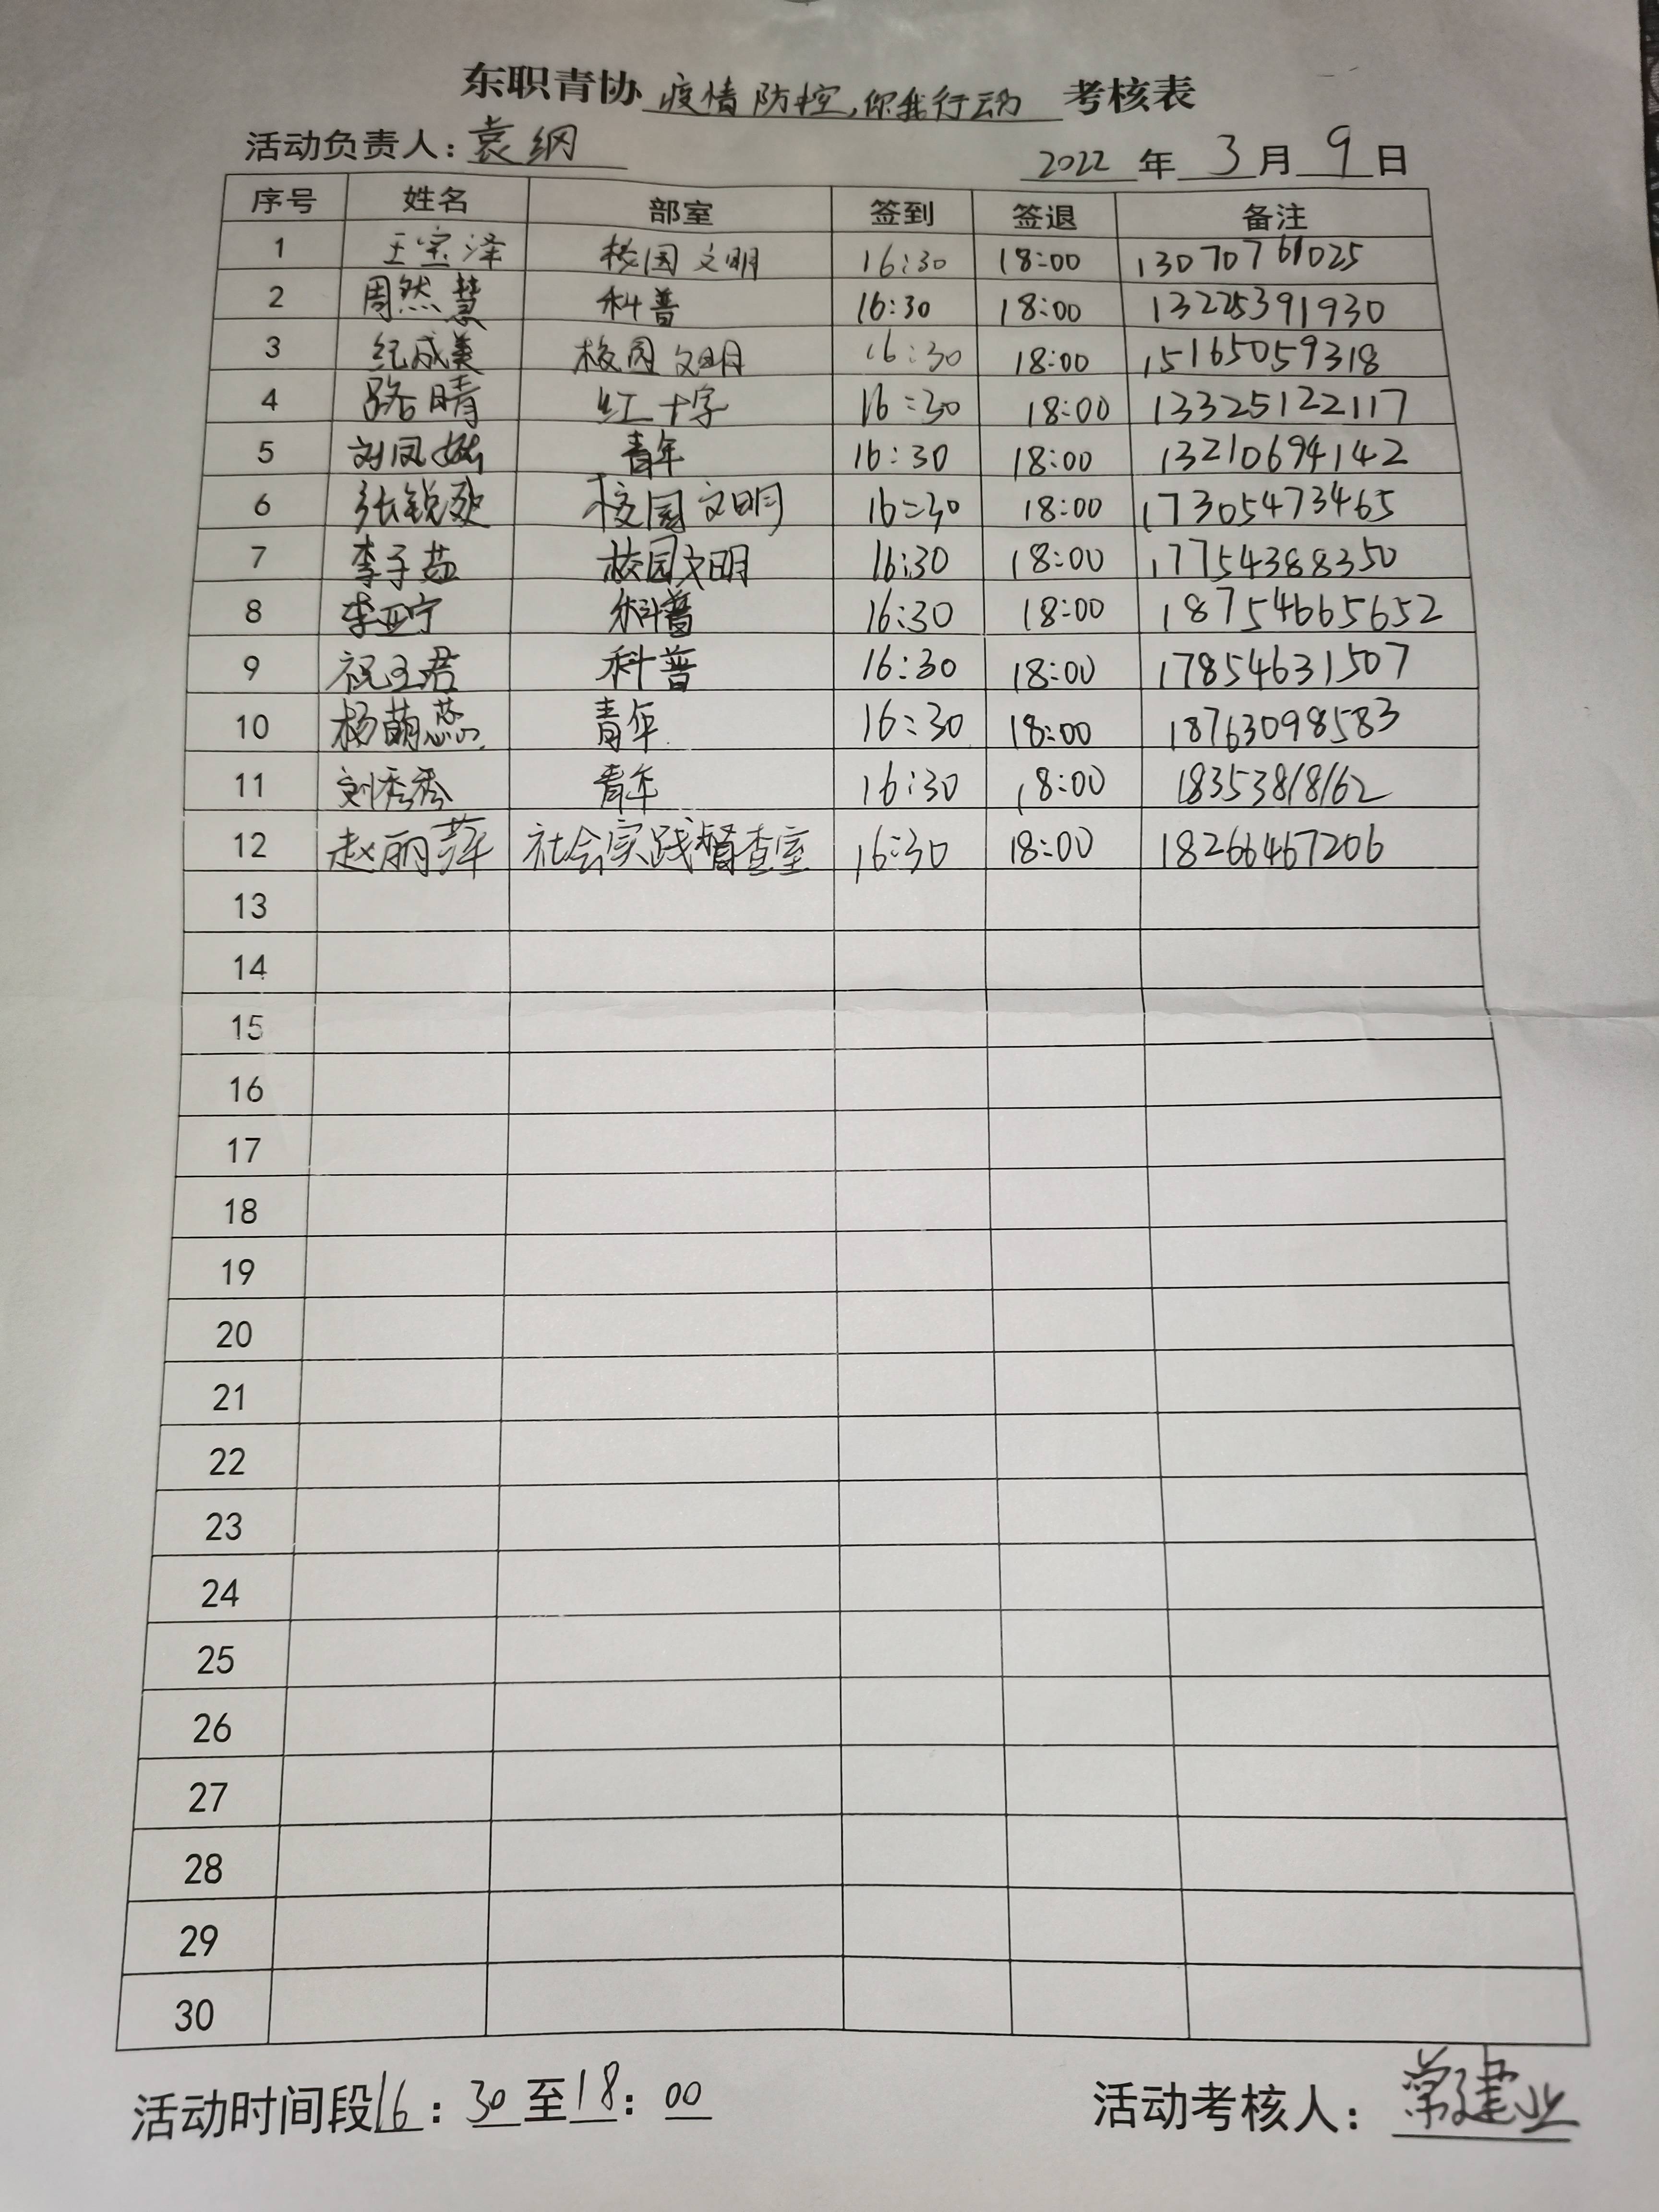 东职青协 疫情防控,你我行动 考核表
活动负责人: 袁纲 2022 年 3 月 9 日
序号 姓名 部室 签到 签退 备注
1 王宝泽 校园文明 16:30 18:00 13070761025
2 周然慧 科普 16:30 18:00 13225391930
3 纪成美 校园文明 16:30 18:00 15165059318
4 路晴 红十字 16:30 18:00 13325122117
5 刘凤 青年 16:30 18:00 13210694142
6 张锐 校园文明 16:30 18:00 17305473465
7 李子茹 校园文明 16:30 18:00 17754388350
8 李亚宁 科普 16:30 18:00 18754665652
9 祝玉君 科普 16:30 18:00 17854631507
10 杨萌蕊 青年 16:30 18:00 18763098583
11 刘秀秀 青年 16:30 18:00 18353818162
12 赵丽萍 社会实践督查室 16:30 18:00 18266467206
13
14
15
16
17
18
19
20
21
22
23
24
25
26
27
28
29
30
活动时间段16:30至18:00 活动考核人: 常建业